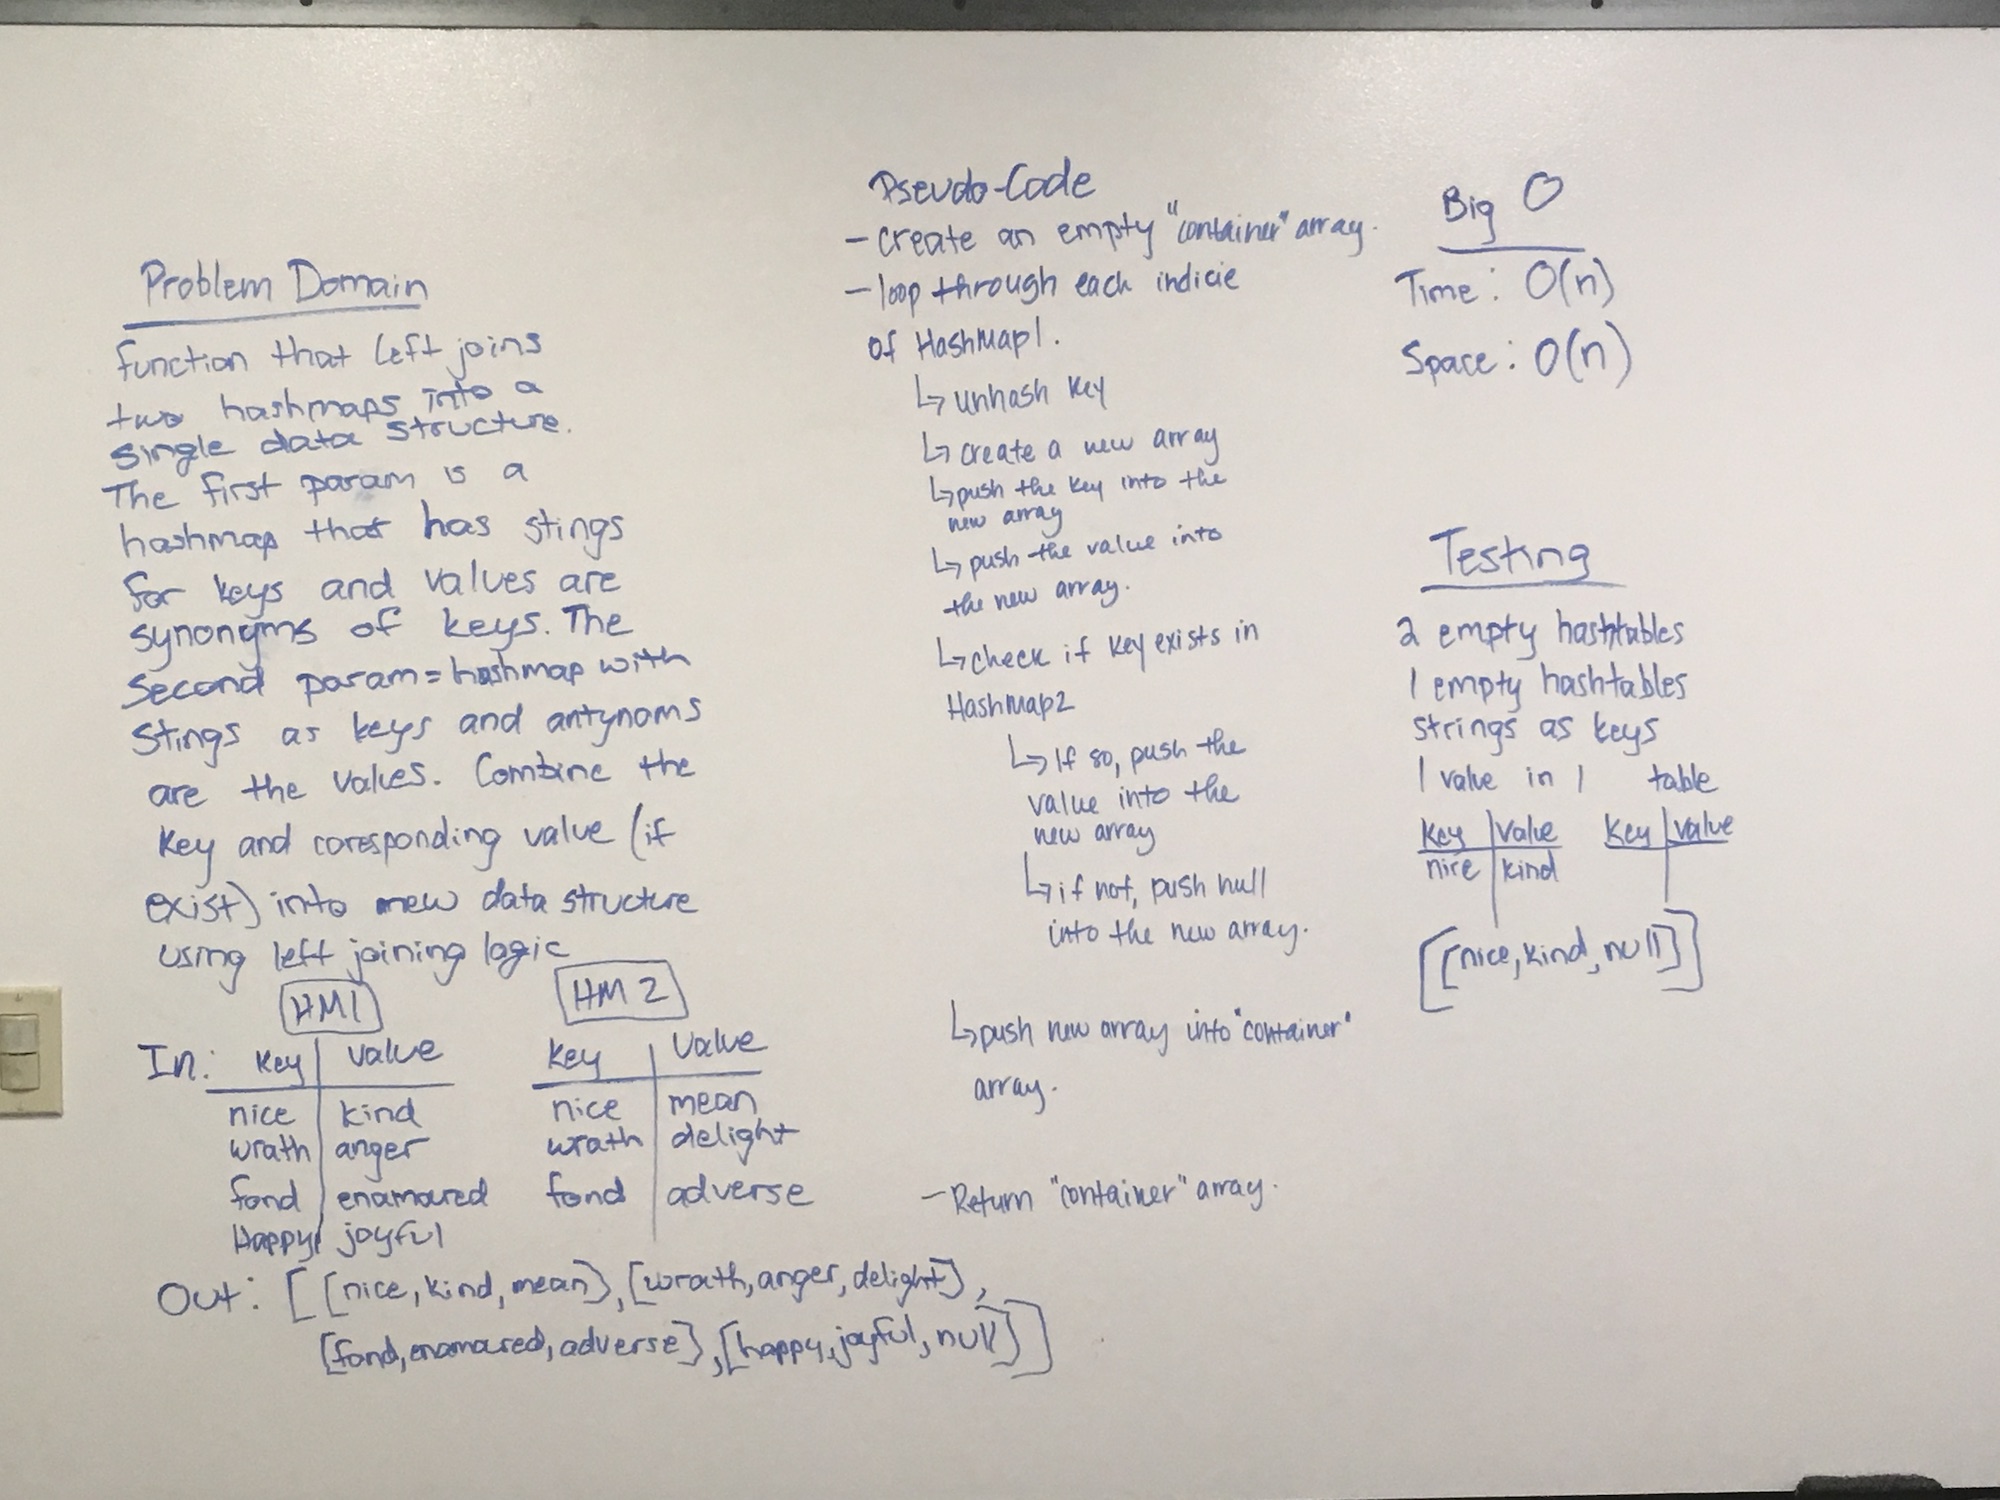 Problem Domain
function that left joins
two hashmaps into a
single data structure.
The first param is a
hashmap that has stings
for keys and values are
synonyms of keys. The
Second param = hashmap with
Stings as keys and antynoms
are the values. Combine the
Key and coresponding value (if
exist) into new data structure
using left joining logic
HM1 HM2
In: Key | Value Key | Value
nice | kind nice | mean
wrath | anger wrath | delight
fond | enamoured fond | adverse
Happy | joyful
Out: [[nice, kind, mean], [wrath, anger, delight],
[fond, enamoured, adverse], [happy, joyful, null]]
Pseudo-Code
- Create an empty "container" array.
- loop through each indicie
of HashMap1.
↳ unhash key
↳ create a new array
↳ push the key into the
new array
↳ push the value into
the new array.
↳ check if key exists in
HashMap2
↳ If so, push the
value into the
new array
↳ if not, push null
into the new array.
↳ push new array into "container"
array.
- Return "container" array.
Big O
Time: O(n)
Space: O(n)
Testing
2 empty hashtables
1 empty hashtables
strings as keys
1 value in 1 table
Key | Value Key | Value
nice | kind
[[nice, kind, null]]